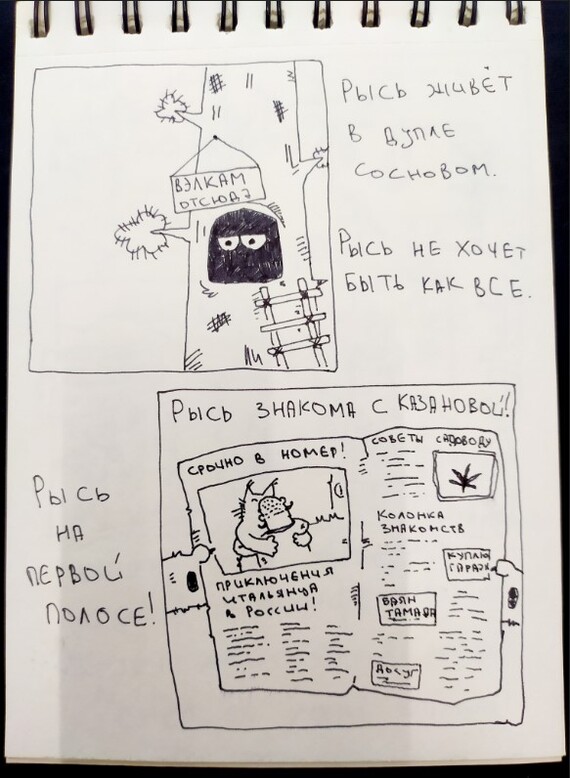 Рысь живёт
в дупле
сосновом.
Вэлкам
отсюдэ
Рысь не хочет
быть как все.
Рысь знакома с Казановой!
Рысь
на
первой
полосе!
Срочно в номер!
Приключения
итальянца
в России!
Советы садоводу
Колонка
знакомств
Куплю
гараж
Баян
тамада
Досуг